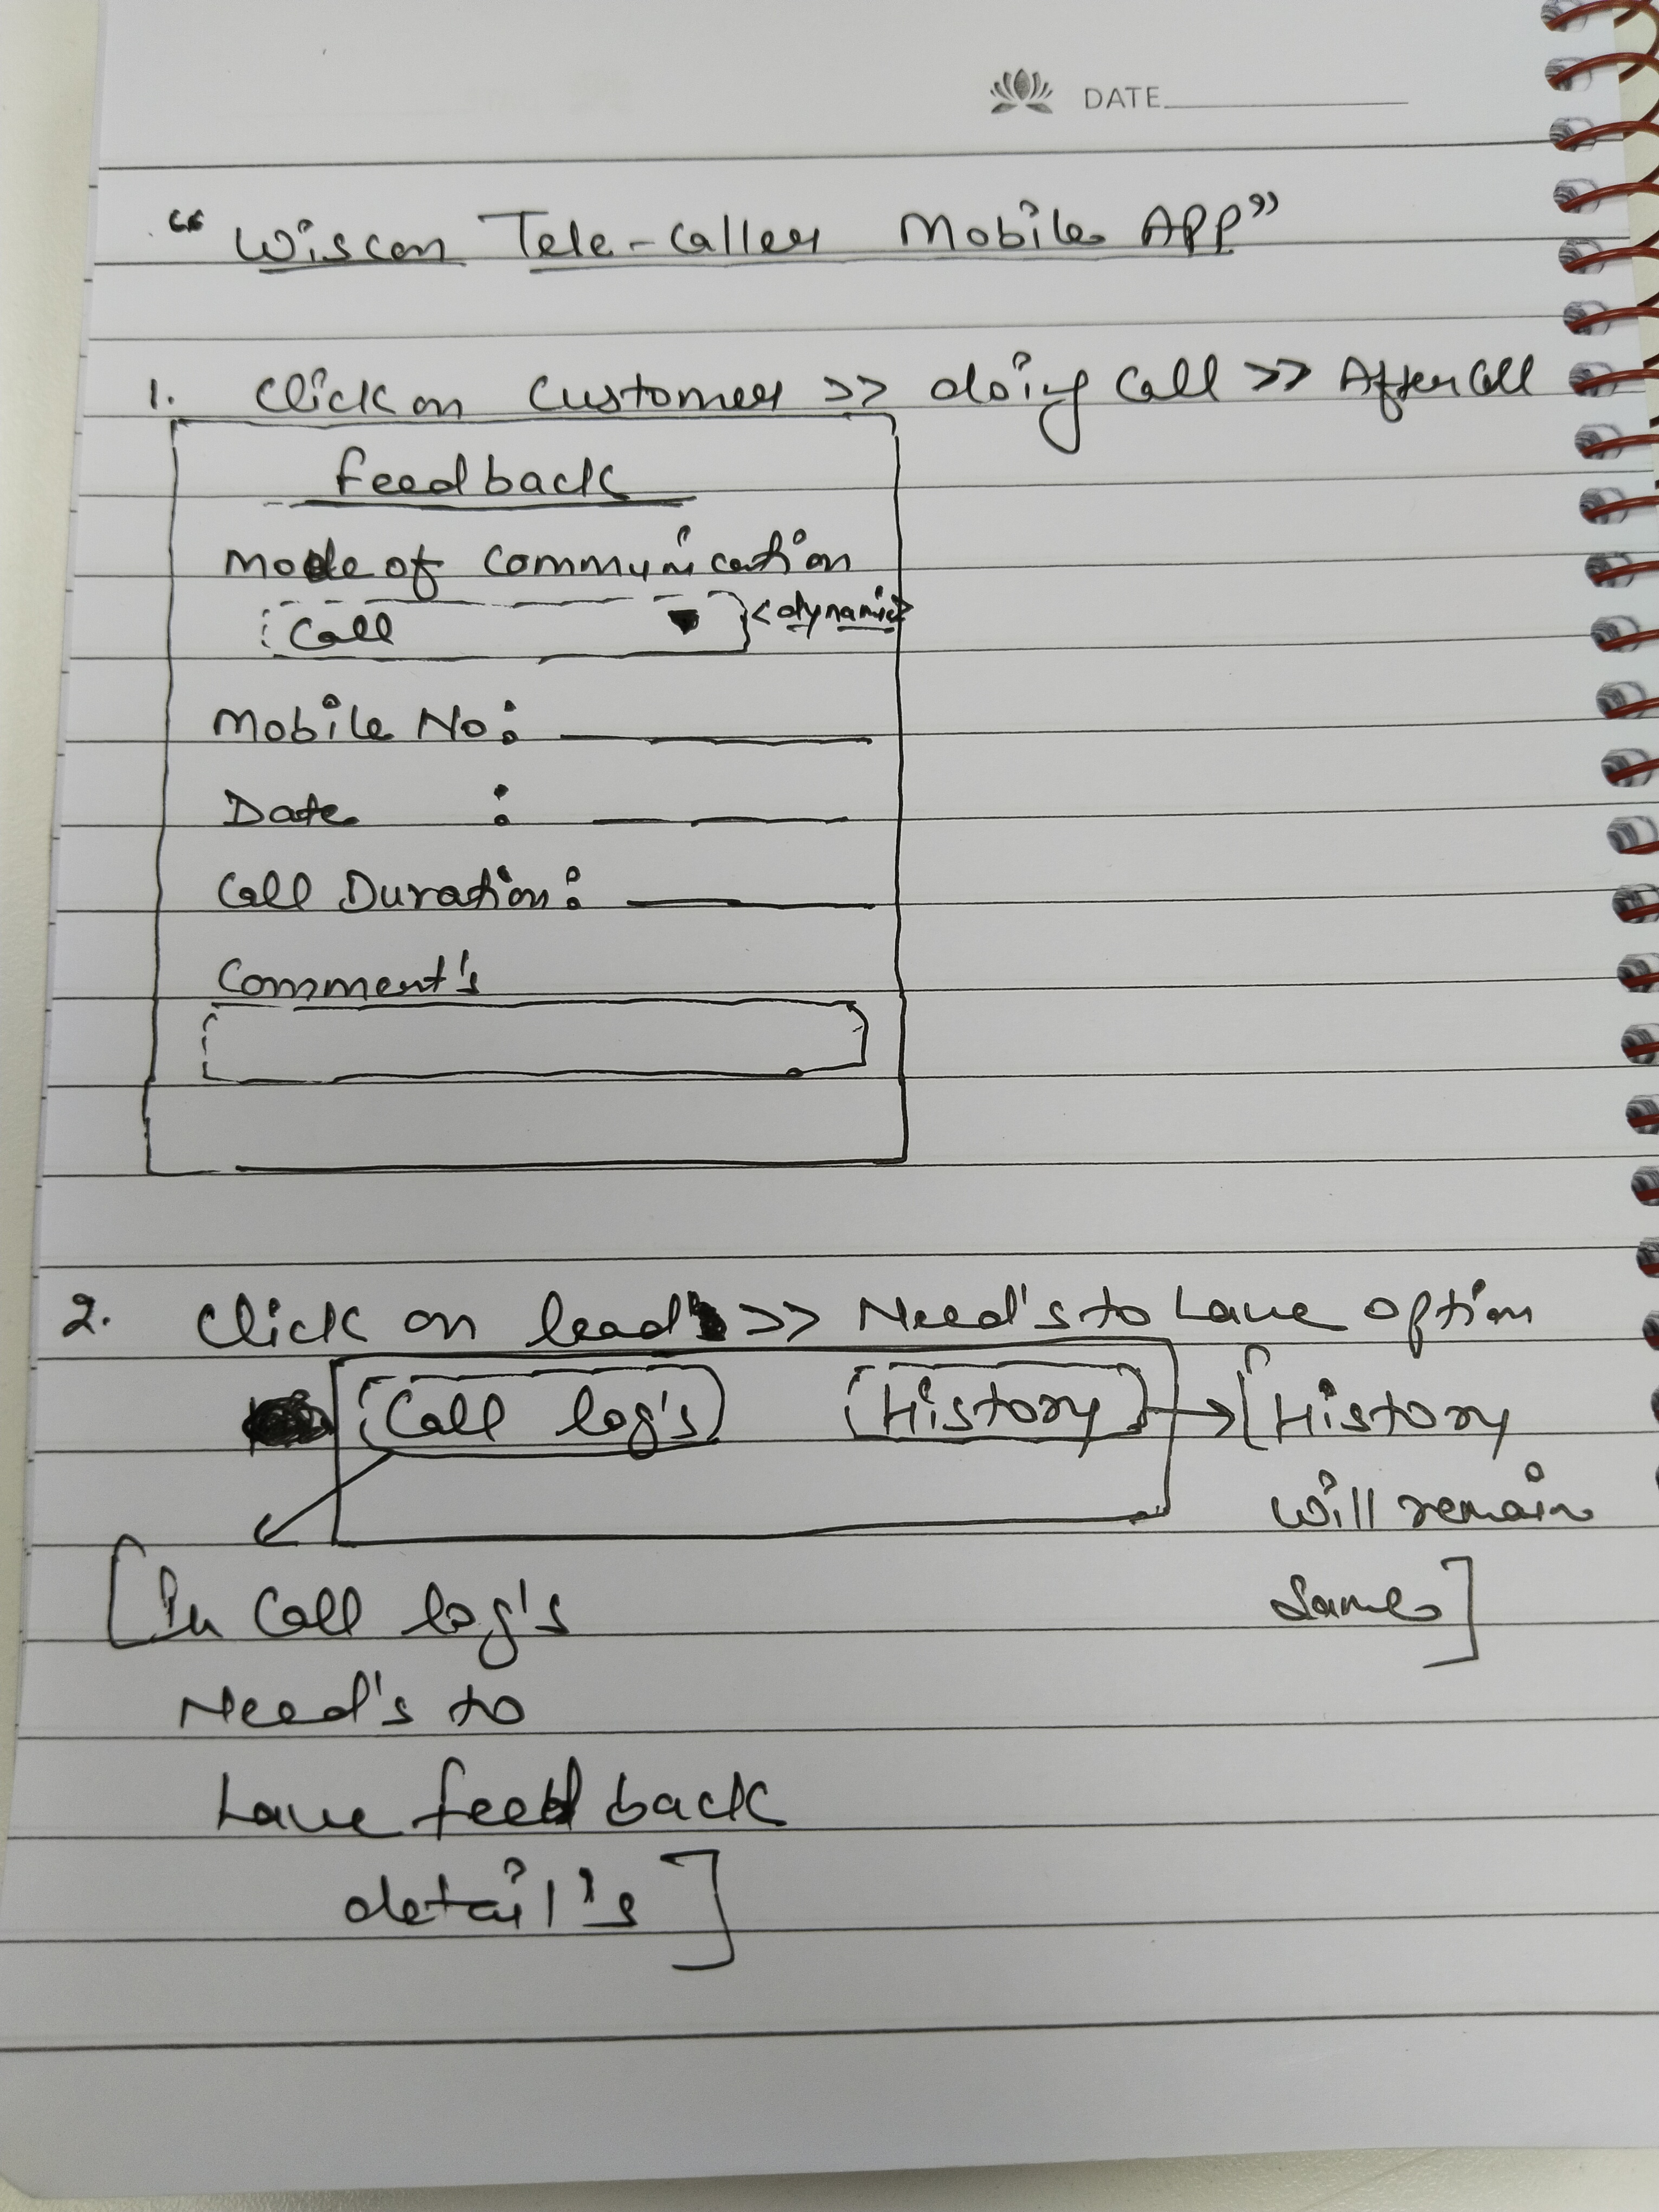 DATE
"Wiscon Tele-Caller Mobile APP"
1. Click on Customer >> doing Call >> After Call
feedback
Mode of Communication
Call <dynamic>
Mobile No:
Date :
Call Duration:
Comment's
2. Click on lead's >> Need's to have option
Call log's History → [History
will remain
Same]
[In Call log's
Need's to
have feedback
detail's]